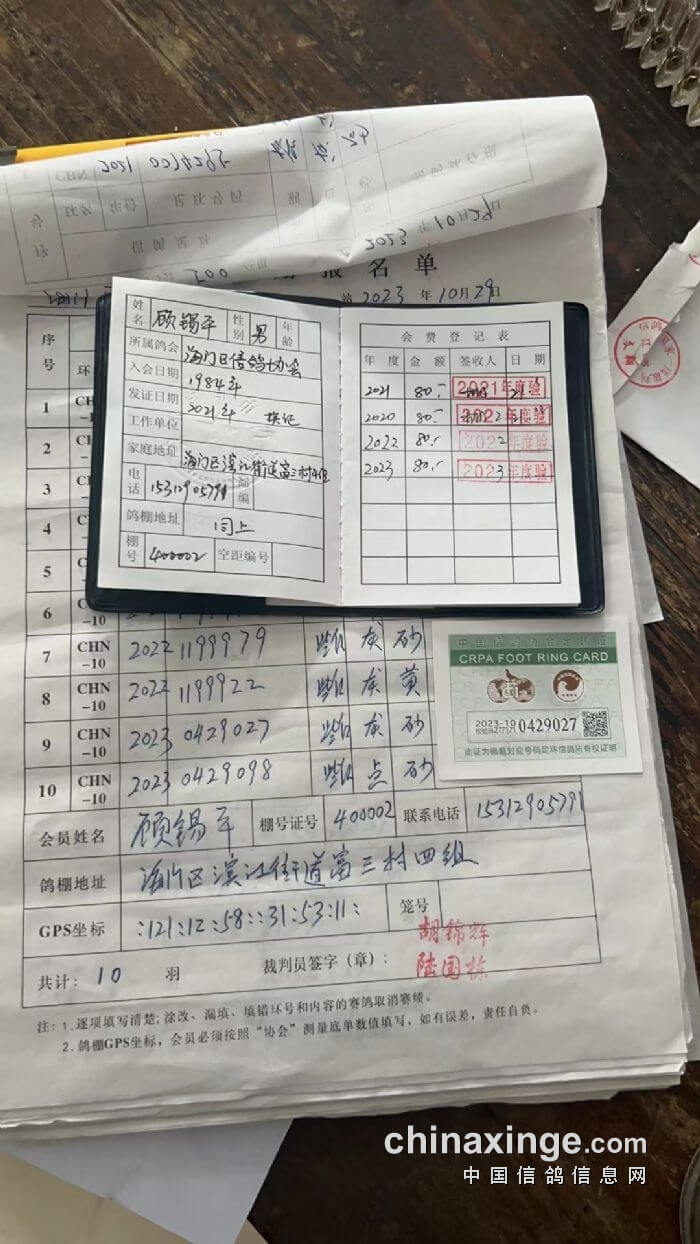 2023 年 10月29日
报名单
站 2023 年 10月29日
姓名 顾锡平 性别 男 年龄
所属鸽会 海门区信鸽协会
入会日期 1984年
发证日期 2021年 换证
工作单位
家庭地址 海门区滨江街道富三村4组
电话 15312905791 邮编
鸽棚地址 同上
棚号 400002 空距编号
会费登记表
年度 金额 签收人 日期
2021 80.- 2021年度验
2020 80.- 2022年度验
2022 80.- 2022年度验
2023 80.- 2023年度验
序号
1 CHN-10
2 CHN-10
3 CHN
4 CHN
5 CHN
6 CHN-10
7 CHN-10 2022 1199979 雌 灰 砂
8 CHN-10 2022 1199922 雌 灰 黄
9 CHN-10 2023 0429027 雌 灰 砂
10 CHN-10 2023 0429098 雌 点 砂
CRPA FOOT RING CARD
2023-10 0429027
此证为佩戴对应号码足环信鸽所有权证明
会员姓名 顾锡平 棚号证号 400002 联系电话 15312905791
鸽棚地址 海门区滨江街道富三村四组
GPS坐标 :121:12:58::31:53:11: 笼号
共计: 10 羽 裁判员签字（章）: 胡锦辉
陆国栋
注：1.逐项填写清楚;涂改、漏填、填错环号和内容的赛鸽取消赛绩。
2.鸽棚GPS坐标，会员必须按照“协会”测量底单数值填写，如有误差，责任自负。
chinaxinge.com
中国信鸽信息网